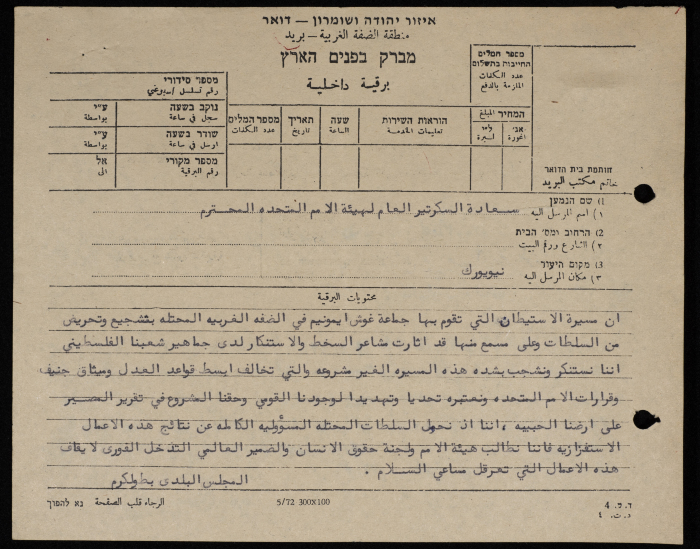 איזור יהודה ושומרון — דואר
منطقة الضفة الغربية — بريد
מברק בפנים הארץ
برقية داخلية
מספר המלים
החייבות בתשלום
عدد الكلمات
الملزمة بالدفع
המחיר المبلغ
אג' اغورة
ל"י ليرة
הוראות השירות
تعليمات الخدمة
שעה
الساعة
תאריך
تاريخ
מספר המלים
عدد الكلمات
מספר סידורי
رقم تسلسل اسبوعي
נוקב בשעה ע"י
سجل في ساعة بواسطة
שודר בשעה ע"י
ارسل في ساعة بواسطة
מספר מקורי אל
رقم البرقية الى
חותמת בית הדואר
خاتم مكتب البريد
1) שם הנמען
١) اسم المرسل اليه سعادة السكرتير العام لهيئة الامم المتحده المحترم
2) הרחוב ומס' הבית
٢) الشارع ورقم البيت
3) מקום היעוד
٣) مكان المرسل اليه نيويورك
محتويات البرقية
ان مسيرة الاستيطان التي تقوم بها جماعة غوش ايمونيم في الضفه الغربيه المحتله بتشجيع وتحريض
من السلطات وعلى مسمع منها قد اثارت مشاعر السخط والاستنكار لدى جماهير شعبنا الفلسطيني
اننا نستنكر ونشجب بشده هذه المسيره الغير مشروعه والتي تخالف ابسط قواعد العدل وميثاق جنيف
وقرارات الامم المتحده ونعتبره تحديا وتهديدا لوجودنا القومي وحقنا المشروع في تقرير المصير
على ارضنا الحبيبه ، اننا اذ نحول السلطات المحتله المسؤوليه الكامله عن نتائج هذه الاعمال
الاستفزازيه فاننا نطالب هيئة الامم ولجنة حقوق الانسان والضمير العالمي التدخل الفورى لايقاف
هذه الاعمال التي تعرقل مساعي السلام .
المجلس البلدى بطولكرم
الرجاء قلب الصفحة נא להפוך
5/72 300X100
ד.ט. 4
د.ت. ٤